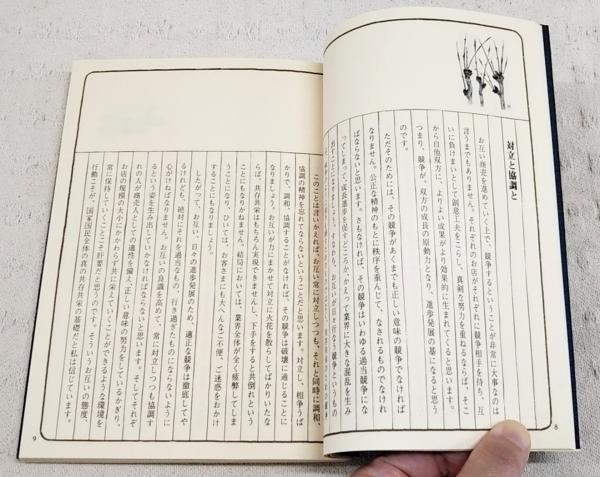 対立と協調と
お互い商売を進めていく上で、競争するということが非常に大事なのは
言うまでもありません。それぞれのお店がそれぞれに競争相手を持ち、互
いに負けまいとして創意工夫をこらし、真剣な努力を重ねるならば、そこ
から自他双方に、よりよい成果がより効果的に生まれてくると思います。
つまり、競争が、双方の成長の原動力となり、進歩発展の基になると思う
のです。
ただそのためには、その競争があくまでも正しい意味の競争でなければ
なりません。公正な精神のもとに秩序を重んじて、なされるものでなけれ
ばならないと思います。さもなければ、その競争はいわゆる過当競争にな
ってしまって、成長進歩を促すどころか、かえって業界に大きな混乱を生み
出すことにもなります。すなわち、お互いが日々行なう競争というもの
8
このことは言いかえれば、お互い常に対立しつつも、それと同時に調和、
協調の精神を忘れてならないということだと思います。対立し、相争うば
かりで、調和、協調することがなければ、その競争は破壊に通じることに
なりましょう。お互いが力にまかせて対立に火花を散らしてばかりいたな
らば、共存共栄はもちろん実現できませんし、下手をすると共倒れという
ことにもなりかねません。結局においては、業界全体が全く疲弊してしま
うことになり、ひいては、お客さまにも大へんなご不便、ご迷惑をおかけ
することにもなりましょう。
したがって、お互い、日々の進歩発展のため、適正な競争は徹底してや
るけれども、絶対にそれを過当なもの、行き過ぎたものにならないように
心がけねばならない。お互いの良識を高めて、常に対立しつつも協調す
るという姿を生み出していかなければならないと思います。そしてそれぞ
れの人が商売人としての適性を備え、正しい意味の努力をしているかぎり、
お店の規模の大小にかかわらず共に栄えていくことができるような環境を
常に保持していくことこそ肝要だと思うのです。そういうお互いの態度、
行動こそが、国家国民全体の真の共存共栄の基礎だと私は信じています。
9